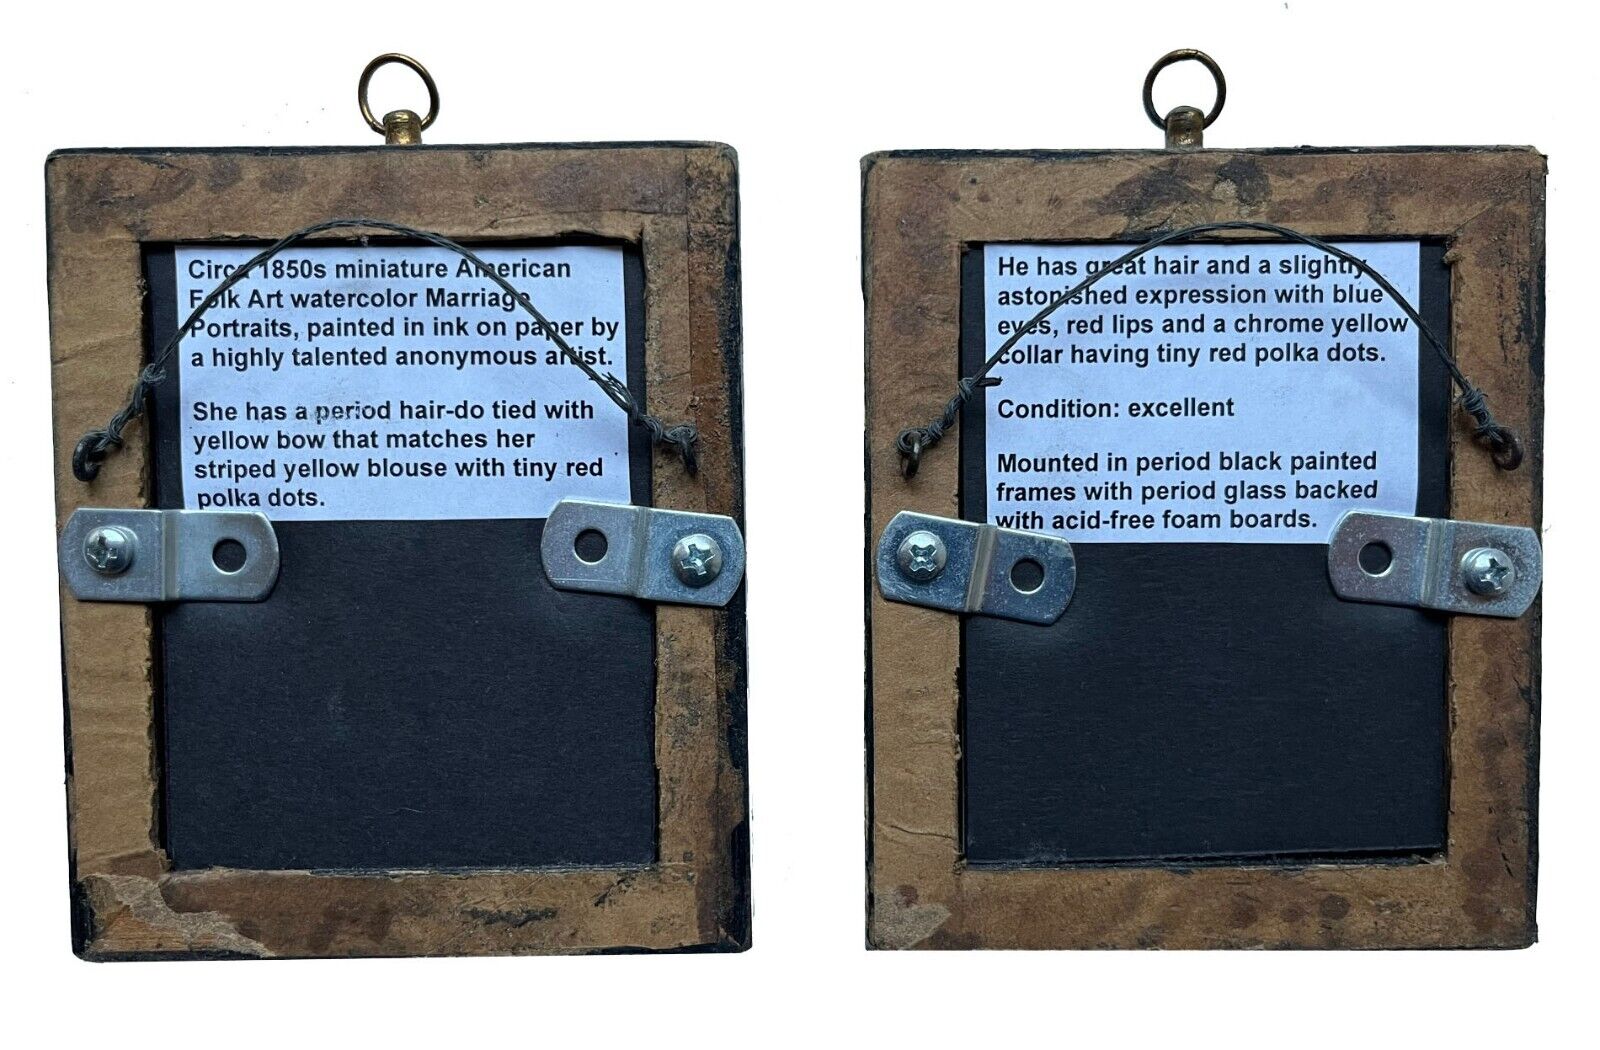 Circa 1850s miniature American
Folk Art watercolor Marriage
Portraits, painted in ink on paper by
a highly talented anonymous artist.
She has a period hair-do tied with
yellow bow that matches her
striped yellow blouse with tiny red
polka dots.
He has great hair and a slightly
astonished expression with blue
eyes, red lips and a chrome yellow
collar having tiny red polka dots.
Condition: excellent
Mounted in period black painted
frames with period glass backed
with acid-free foam boards.